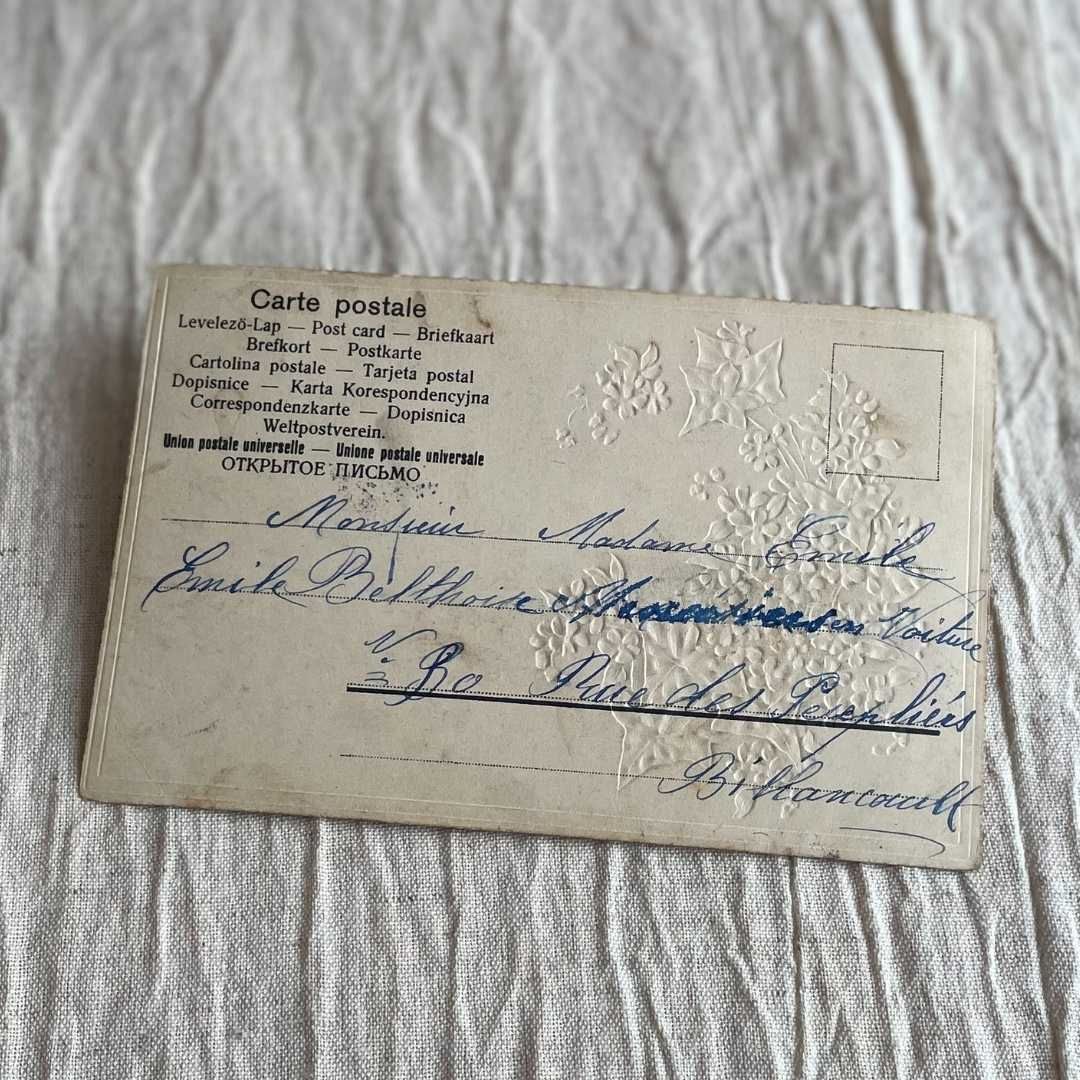 Carte postale
Levelező-Lap — Post card — Briefkaart
Brefkort — Postkarte
Cartolina postale — Tarjeta postal
Dopisnice — Karta Korespondencyjna
Correspondenzkarte — Dopisnica
Weltpostverein.
Union postale universelle — Unione postale universale
ОТКРЫТОЕ ПИСЬМО
Monsieur Madame Emile
Emile Belthoise en Voiture
N= 80 Rue des Peupliers
Billancourt